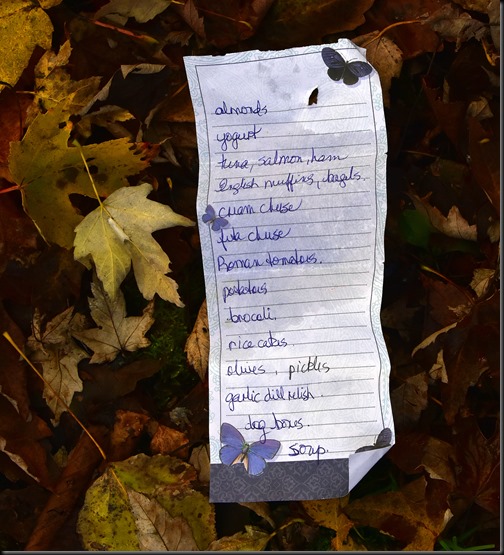 almonds
yogurt
tuna, salmon, ham
English muffins, bagels.
cream cheese
feta cheese
Roman tomatoes.
potatoes
brocoli.
rice cakes
olives, pickles
garlic dill relish.
dog bones.
soup.